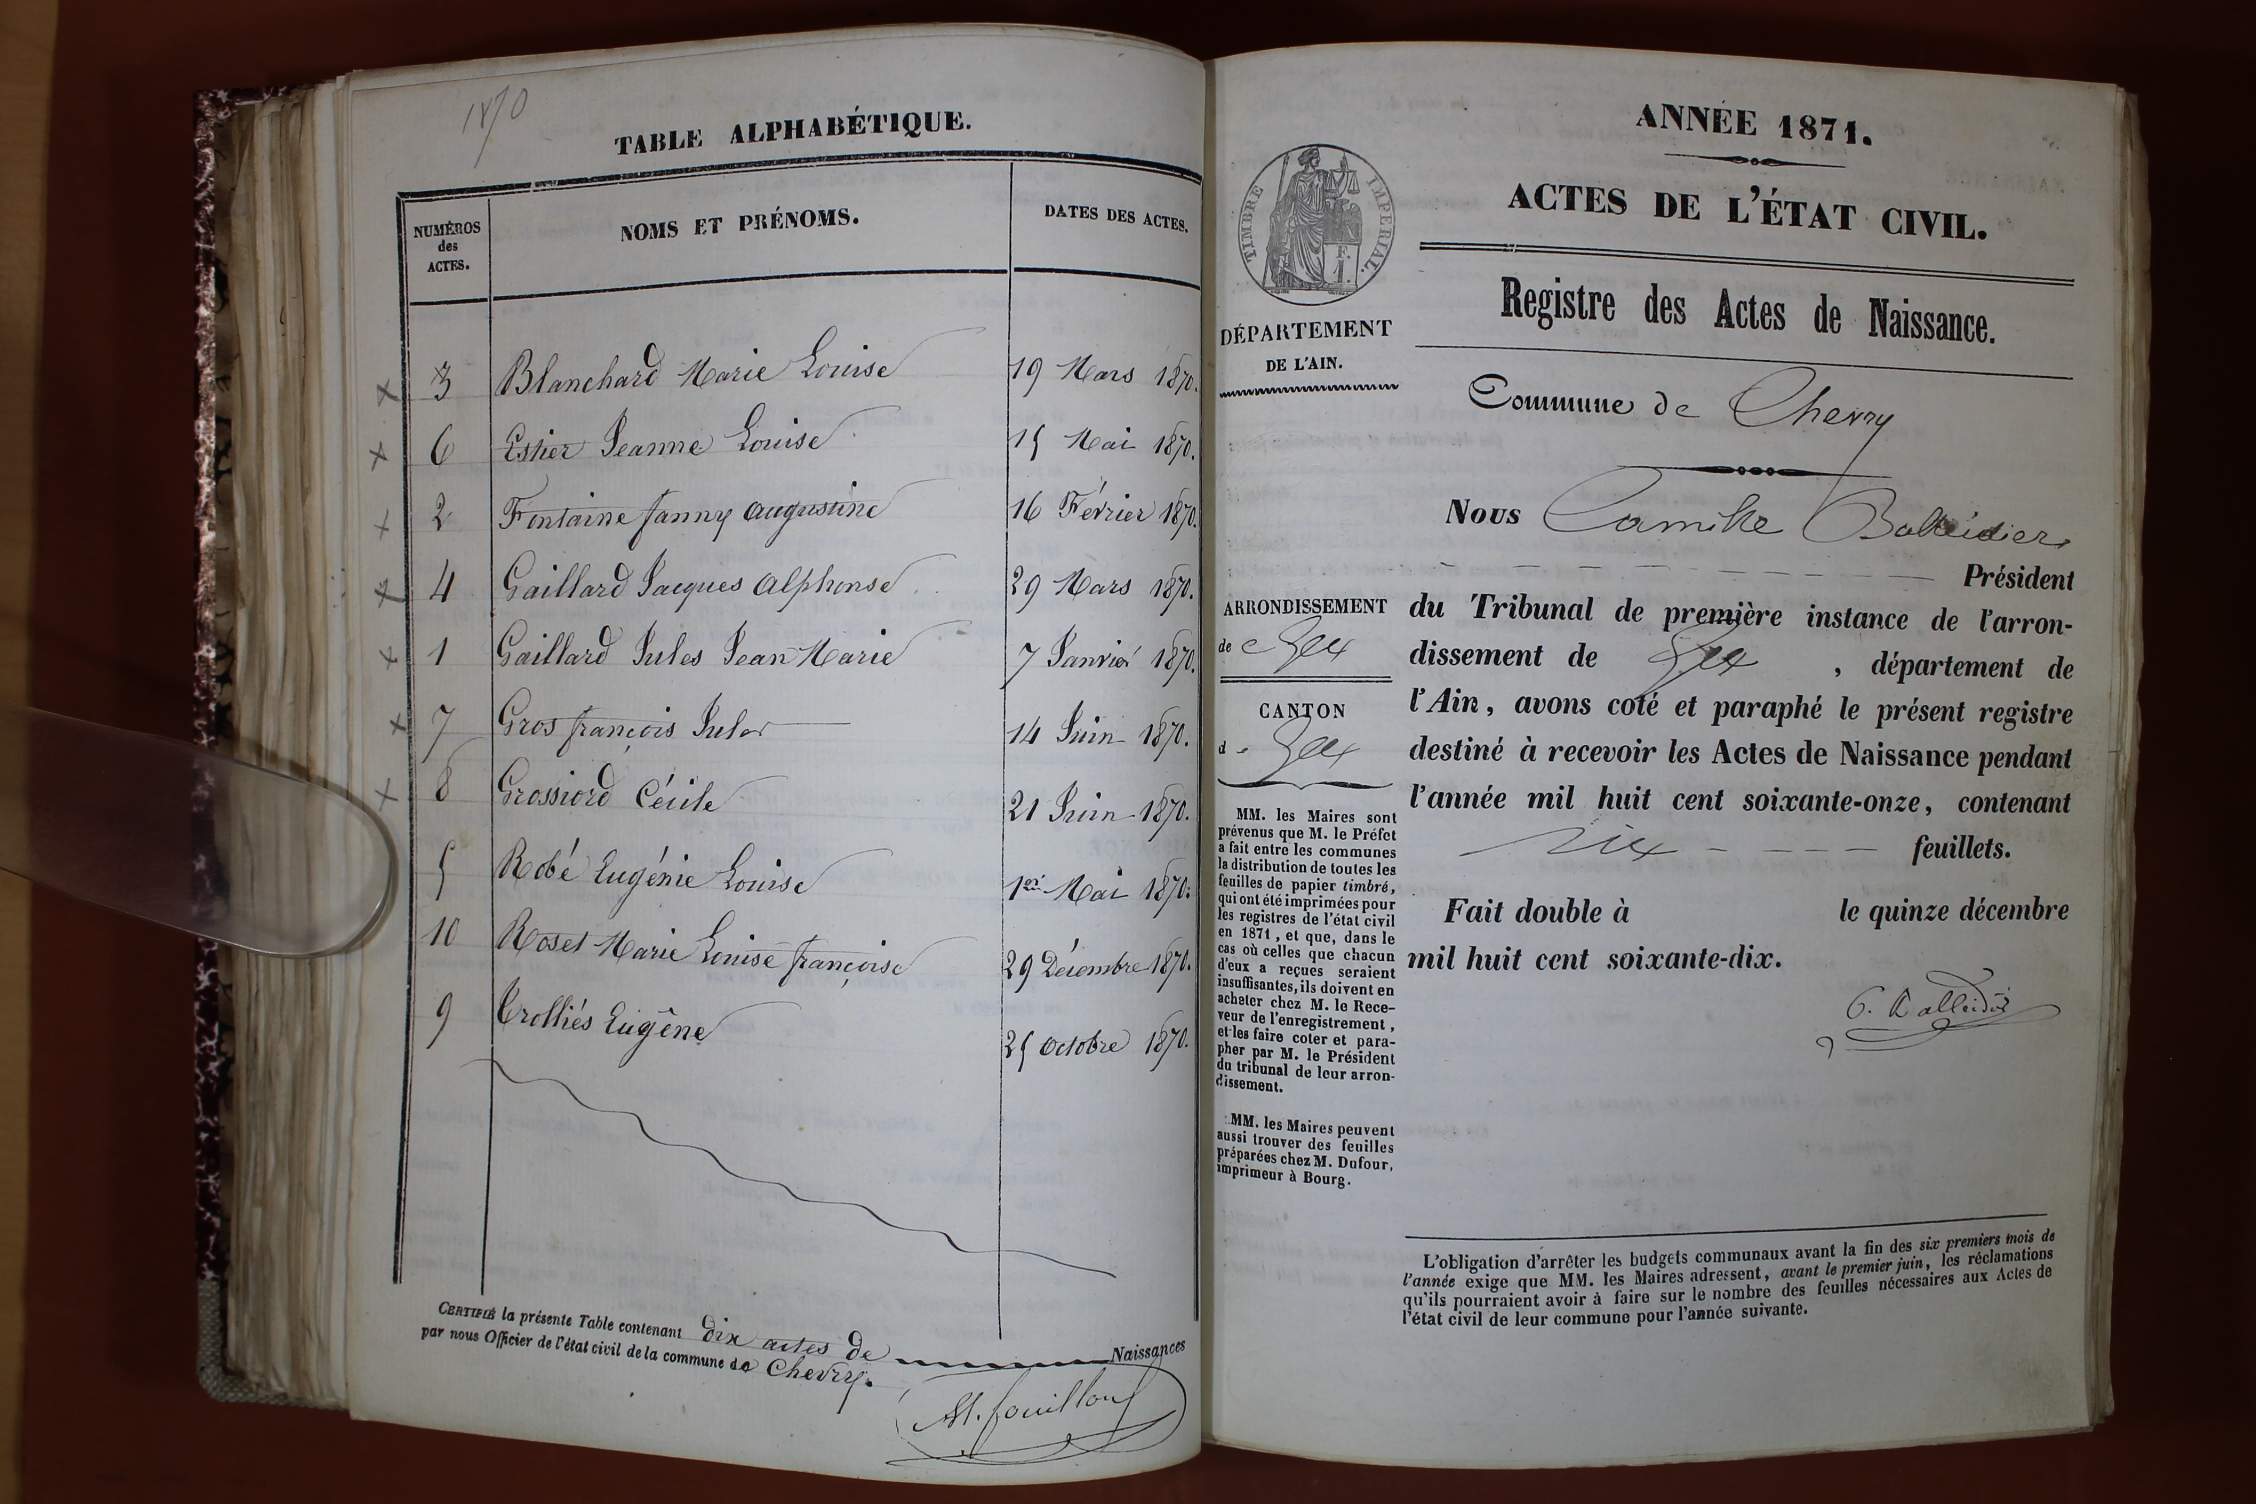 1870
TABLE ALPHABÉTIQUE.
NUMÉROS des ACTES. NOMS ET PRÉNOMS. DATES DES ACTES.
3 Blanchard Marie Louise 19 Mars 1870.
6 Estier Jeanne Louise 15 Mai 1870.
2 Fontaine fanny augustine 16 Février 1870.
4 Gaillard Jacques alphonse 29 Mars 1870.
1 Gaillard Jules Jean Marie 7 Janvier 1870.
7 Gros françois Jules 14 Juin 1870.
8 Grossiord Cécile 21 Juin 1870.
5 Robé Eugénie Louise 1er Mai 1870.
10 Roset Marie Louise françoise 29 Décembre 1870.
9 Trolliés Eugène 25 octobre 1870.
CERTIFIÉ la présente Table contenant dix actes de Naissances
par nous Officier de l'état civil de la commune de Chevry.
ANNÉE 1871.
ACTES DE L'ÉTAT CIVIL.
Registre des Actes de Naissance.
TIMBRE IMPERIAL.
DÉPARTEMENT
DE L'AIN.
ARRONDISSEMENT
de Gex
CANTON
de Gex
MM. les Maires sont
prévenus que M. le Préfet
a fait entre les communes
la distribution de toutes les
feuilles de papier timbré,
qui ont été imprimées pour
les registres de l'état civil
en 1871, et que, dans le
cas où celles que chacun
d'eux a reçues seraient
insuffisantes, ils doivent en
acheter chez M. le Rece-
veur de l'enregistrement,
et les faire coter et para-
pher par M. le Président
du tribunal de leur arron-
dissement.
MM. les Maires peuvent
aussi trouver des feuilles
préparées chez M. Dufour,
imprimeur à Bourg.
Commune de Chevry
Nous Camille Balleidier
Président
du Tribunal de première instance de l'arron-
dissement de Gex, département de
l'Ain, avons coté et paraphé le présent registre
destiné à recevoir les Actes de Naissance pendant
l'année mil huit cent soixante-onze, contenant
six feuillets.
Fait double à le quinze décembre
mil huit cent soixante-dix.
C. Balleidier
L'obligation d'arrêter les budgets communaux avant la fin des six premiers mois de
l'année exige que MM. les Maires adressent, avant le premier juin, les réclamations
qu'ils pourraient avoir à faire sur le nombre des feuilles nécessaires aux Actes de
l'état civil de leur commune pour l'année suivante.